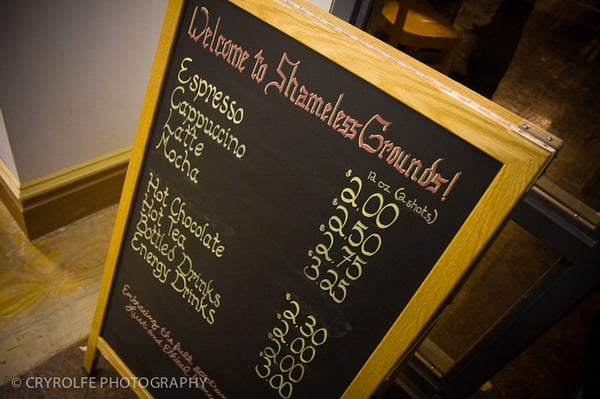 Welcome to Shameless Grounds!
12 oz (2 shots)
Espresso $2.00
Cappuccino $2.50
Latte $2.75
Mocha $3.25
Hot Chocolate $2.30
Hot Tea $2.00
Bottled Drinks $2.00
Energy Drinks $3.00
Embracing the full spectrum
© CRYROLFE PHOTOGRAPHY